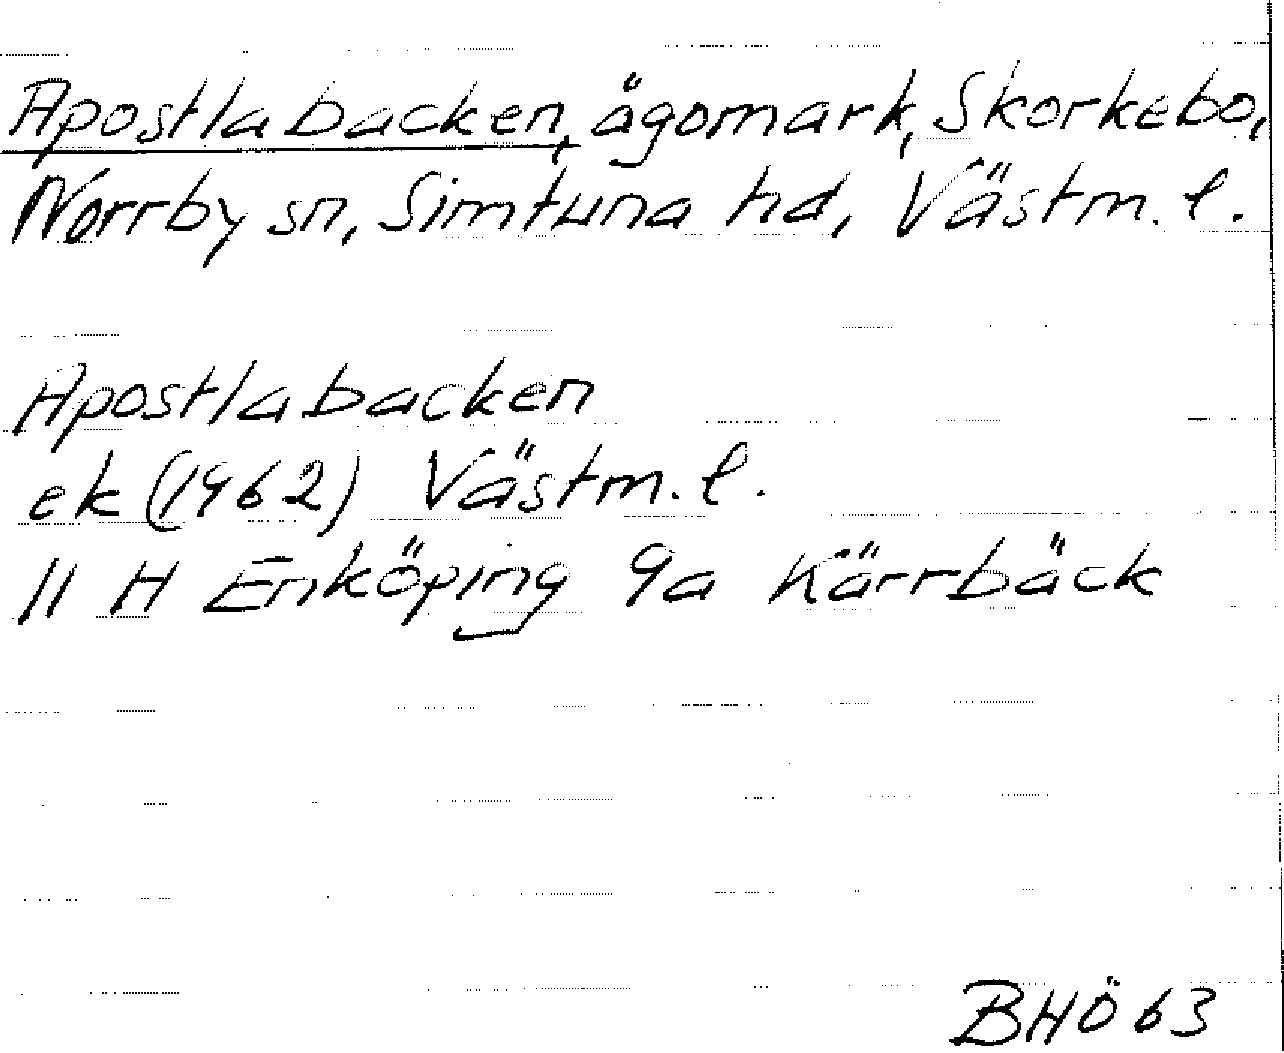 Apostlabacken, ägomark, Skorkebo,
Norrby sn, Simtuna hd, Västm. l.
Apostlabacken
ek (1962) Västm. l.
11 H Enköping 9a Kärrbäck
BHÖ 63